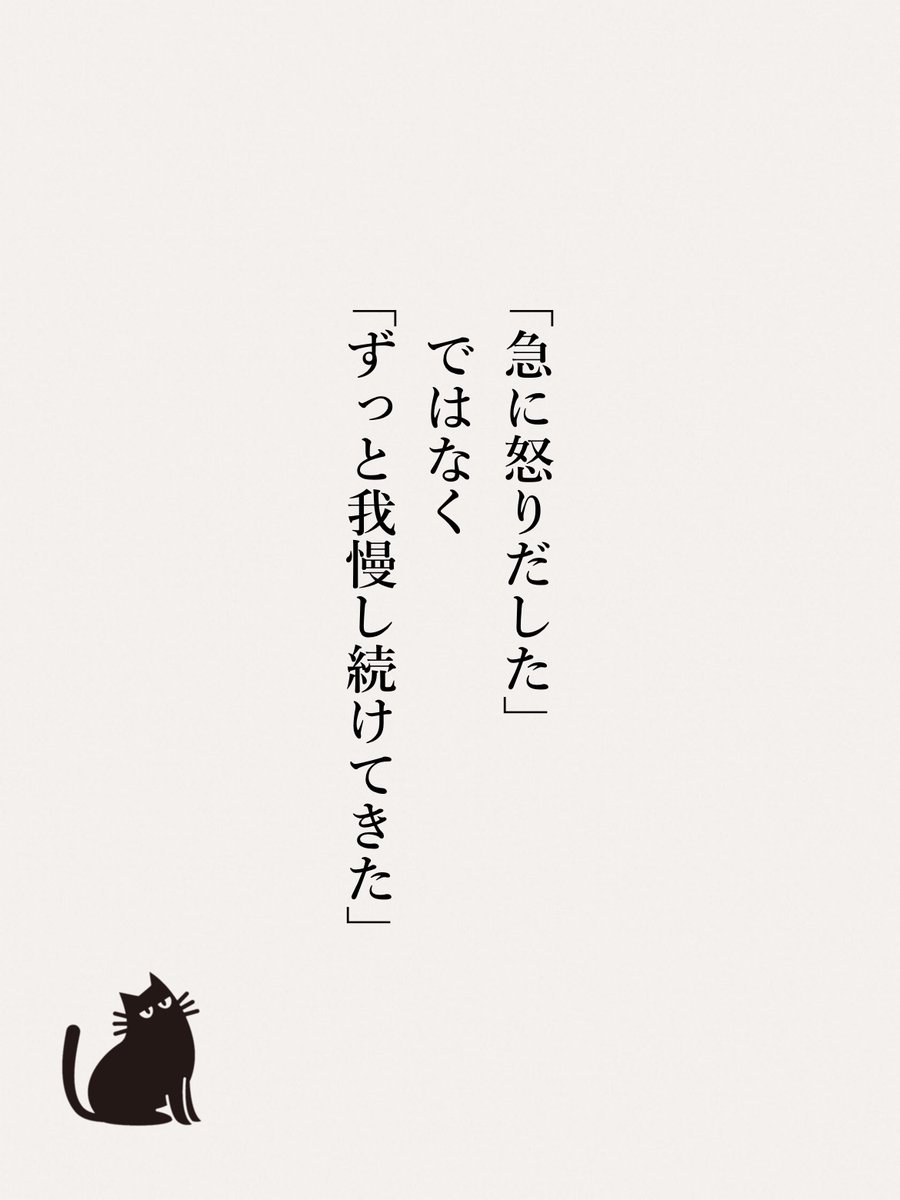 「急に怒りだした」
ではなく
「ずっと我慢し続けてきた」